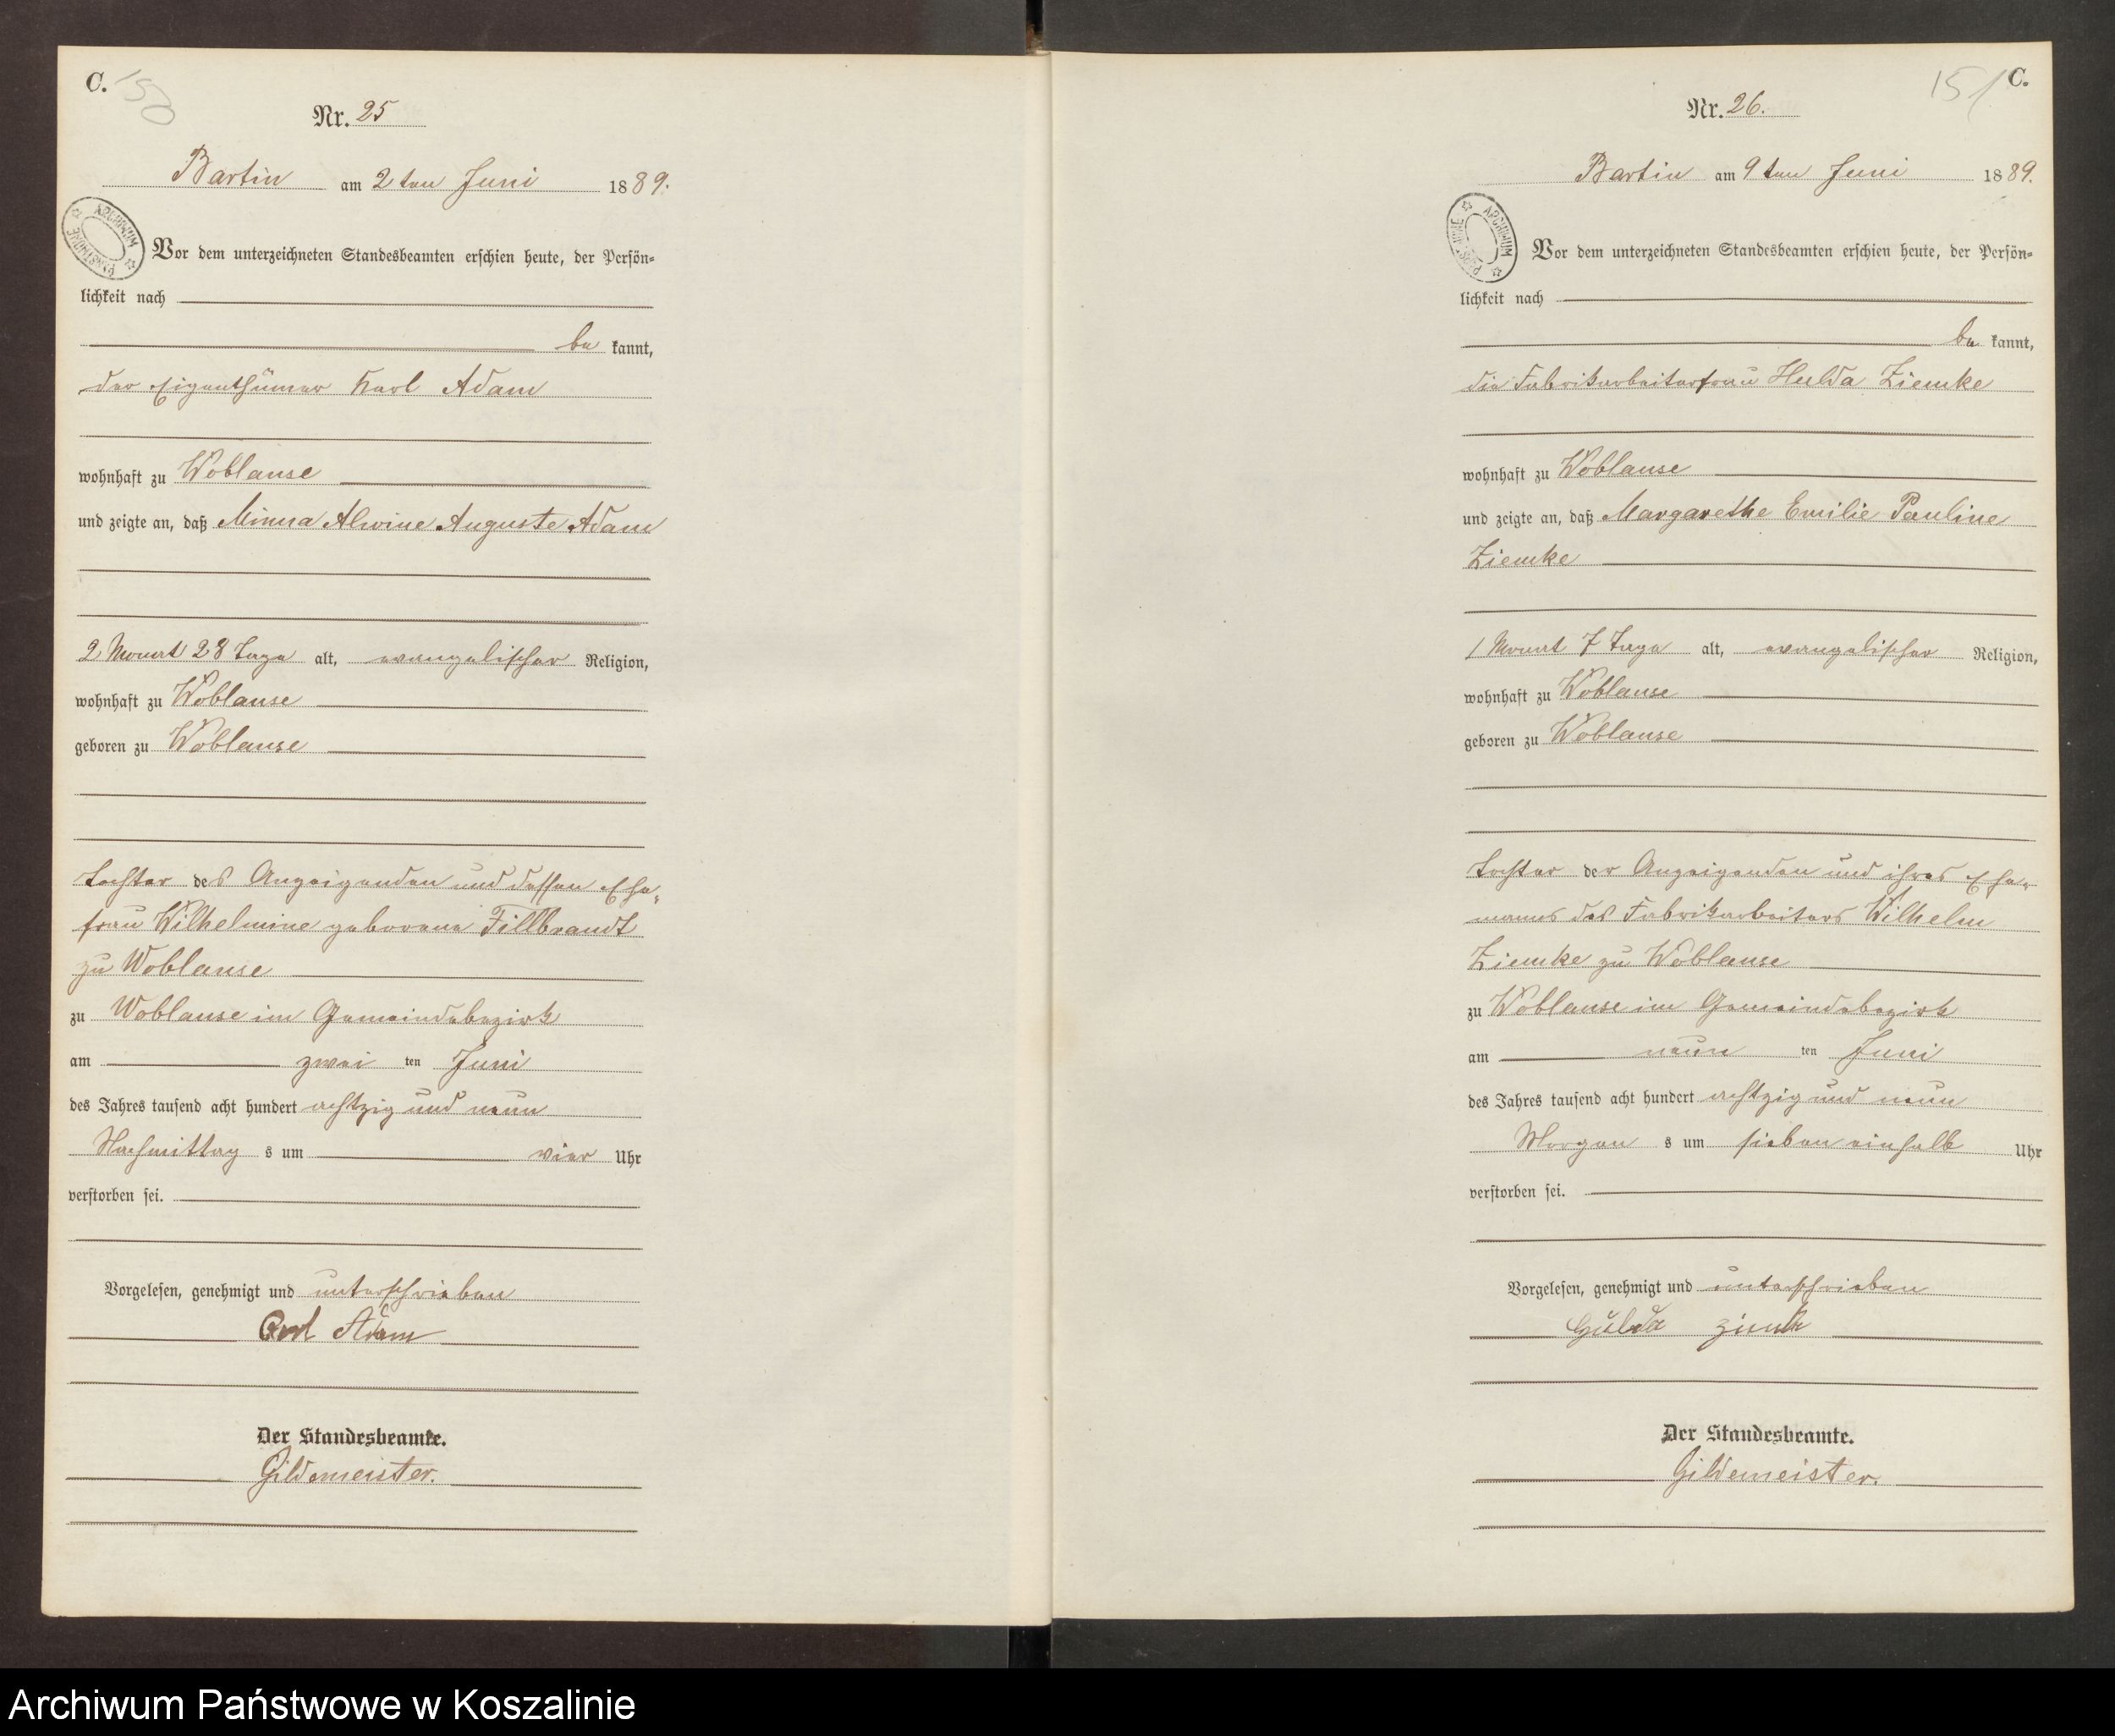 C.
150
Nr. 25
Bartin am 2ten Juni 1889.
ARCHIWUM PAŃSTWOWE
Vor dem unterzeichneten Standesbeamten erschien heute, der Persön-
lichkeit nach
be kannt,
der Eigenthümer Karl Adam
wohnhaft zu Woblanse
und zeigte an, daß Minna Alwine Auguste Adam
2 Monat 28 Tage alt, evangelischer Religion,
wohnhaft zu Woblanse
geboren zu Woblanse
Tochter des Anzeigenden und dessen Ehe-
frau Wilhelmine geborene Fillbrandt
zu Woblanse
zu Woblanse im Gemeindebezirk
am zwei ten Juni
des Jahres tausend acht hundert achtzig und neun
Nachmittag s um vier Uhr
verstorben sei.
Vorgelesen, genehmigt und unterschrieben
Carl Adam
Der Standesbeamte.
Gildemeister.
C.
151
Nr. 26.
Bartin am 9ten Juni 1889.
ARCHIWUM PAŃSTWOWE
Vor dem unterzeichneten Standesbeamten erschien heute, der Persön-
lichkeit nach
be kannt,
die Fabrikarbeiterfrau Hulda Ziemke
wohnhaft zu Woblanse
und zeigte an, daß Margarethe Emilie Pauline
Ziemke
1 Monat 7 Tage alt, evangelischer Religion,
wohnhaft zu Woblanse
geboren zu Woblanse
Tochter der Anzeigenden und ihres Ehe-
manns des Fabrikarbeiters Wilhelm
Ziemke zu Woblanse
zu Woblanse im Gemeindebezirk
am neun ten Juni
des Jahres tausend acht hundert achtzig und neun
Morgen s um sieben einhalb Uhr
verstorben sei.
Vorgelesen, genehmigt und unterschrieben
Hulda
Der Standesbeamte.
Gildemeister.
Archiwum Państwowe w Koszalinie